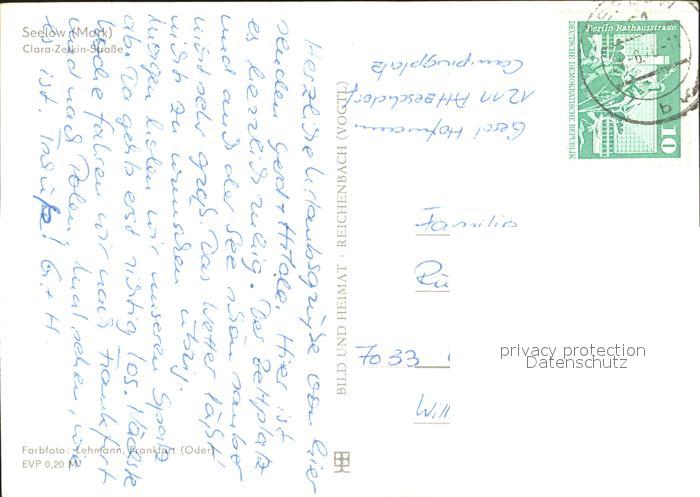 Seelow (Mark)
Clara-Zetkin-Straße
Herzliche Urlaubsgrüße von hier
senden Gerd + Hilde. Hier ist
es herrlich ruhig. Der Zeltplatz
und auch der See schön sauber
nicht sehr groß. Das Wetter läßt
nicht zu wünschen übrig.
Morgen holen wir unseren
ab. Da gehts erst richtig los. Nächste
Woche fahren wir nach Frankfurt
und nach Polen. Mal sehen, wie
es ist. Tschüß! G. + H.
Farbfoto: Lehmann, Frankfurt (Oder)
EVP 0,20 M
BILD UND HEIMAT · REICHENBACH (VOGTL)
Gerd Hofmann
1211
Campingplatz
Berlin-Rathausstraße
DEUTSCHE DEMOKRATISCHE REPUBLIK
10
Familie
7033
privacy protection
Datenschutz